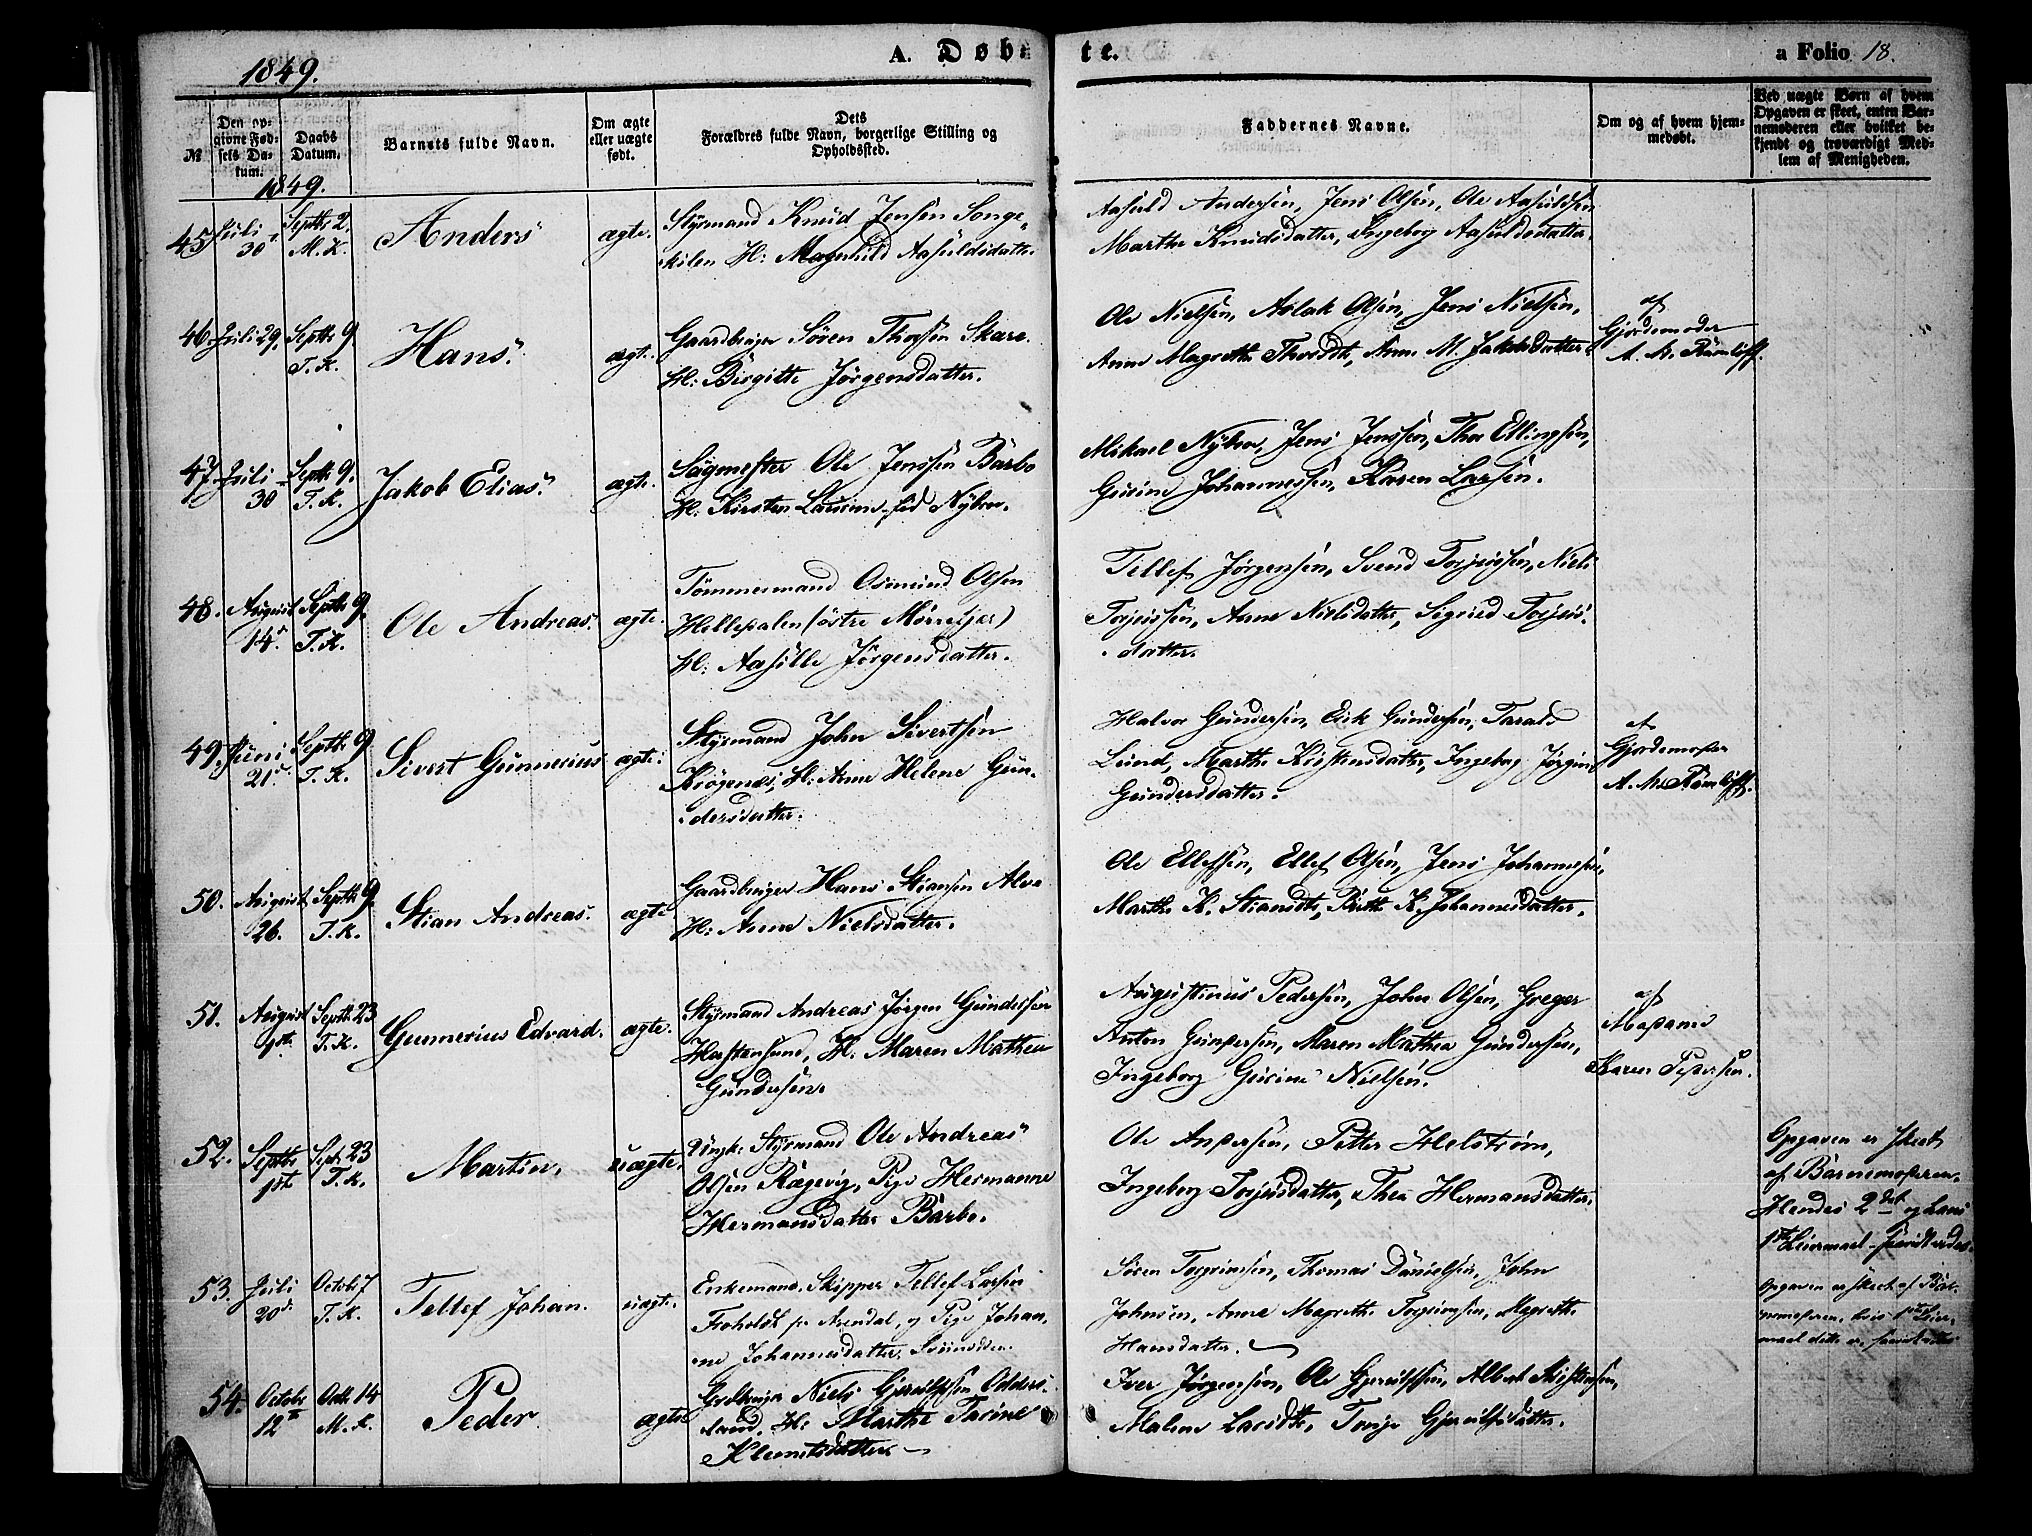 1849.
A. Døbte.
a Folio 18.
№
Den opgivne Fødsels Datum.
Daabs Datum.
Barnets fulde Navn.
Om ægte eller uægte født.
Dets Forældres fulde Navn, borgerlige Stilling og Opholdssted.
Faddernes Navne.
Om og af hvem hjemmedøbt.
Ved uægte Børn af hvem Opgaven er skeet, enten Barnemoderen eller hvilket bekjendt og troværdigt Medlem af Menigheden.
1849.
45. Juli 30te Septbr 2. M. K.
Anders
ægte.
Styrmand Knud Jensen Songe-
kilen H: Magnhild Aasuldsdatter
Aasuld Andersen, Jens Olsen, Ole Aasuldsen
Marthe Knudsdatter, Ingeborg Aasuldsdatter.
46. Juli 29. Septbr 9. T. K.
Hans.
ægte.
Gaardbruger Sören Thorsen Skare
H: Birgitte Jörgensdatter.
Ole Nielsen, Aslak Olsen, Jens Nielsen,
Anne Magrethe Thorsdtr, Anne M. Jakobsdatter.
af
Gjordemoder
A. M. Rømloff.
47. Juli 30 Septbr 9. T. K.
Jakob Elias.
ægte.
Sagmester Ole Jenssen Barbo
H: Kirsten Lauine fød Nybro.
Mikael Nybro, Jens Jenssen, Thor Ellingsen,
Gurine Johannessen, Karen Larsen.
48. August 14de Septbr 9. T. K.
Ole Andreas.
ægte.
Tømmermand Osmund Olsen
Hellesalen (östre Mørretjær)
H: Aasille Jörgensdatter.
Tellef Jørgensen, Svend Torjussen, Niels
Torjussen, Anne Nielsdatter, Sigrid Torjus-
datter.
49. Juni 21de Septbr 9. T. K.
Sivert Gunnerius
ægte.
Styrmand John Sivertsen
Krøgenes, H: Anne Helene Gun-
dersdatter.
Halvor Gundersen, Eirk Gundersen, Tarald
Lund, Marthe Kirstensdatter, Ingeborg Jörgine
Gundersdatter.
af
Gjordemoder
A. M. Rømloff.
50. August 26. Septbr 9. T. K.
Stian Andreas.
ægte
Gaardbruger Hans Stiansen Alve
H: Anne Nielsdatter.
Ole Ellefsen, Ellef Olsen, Jens Johannesen,
Marthe K. Stiansdtr, Birthe K. Johannesdatter.
51. August 1ste Septb. 23 T. K.
Gunnerius Edvard.
ægte.
Styrmand Andreas Jörgen Gundersen
Hastensund, H: Maren Mathea
Gundersen
Augustinus Pedersen, John Olsen, Greger
Anton Gundersen, Maren Mathea Gundersen,
Ingeborg Gurine Nielsen.
af
Madame
Karen Pedersen.
52. Septbr 1ste Sept. 23 T. K.
Martin.
uægte.
Ungk: Styrmand Ole Andreas
Olsen Rægevig, Pige Hermanne
Hermansdatter Barbo.
Ole Andersen, Petter Helstrøm,
Ingeborg Torjusdatter, Thea Hermansdatter.
Opgaven er skeet
af Barnemoderen.
Hendes 2det og hans
1ste Leiermaal
53. Juli 20de Octobr 7 T. K.
Tellef Johan.
uægte.
Enkemand Skipper Tellef Larsen
Froholdt fr Arendal, og Pige Johan-
ne Johannesdatter
Sören Torgrimsen, Thomas Danielsen, John
Johnsen, Anne Magrethe Torgrimsen, Magrethe
Hansdatter.
Opgaven er skeet af Bar-
nemoderen, hvis 1ste Leier-
maal dette er,
54. Octobr 12te Octb. 14 M. K.
Peder
ægte
Grdbruger Niels Gjerulfsen Odders-
land, H: Marthe Tarine
Klemetsdatter
Iver Jørgensen, Ole Gjerulfsen, Albert
Malene Larsdtr, Torje Gjerulfsdatter.